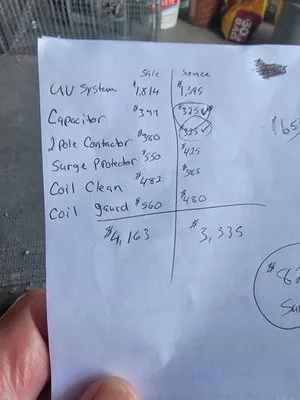 Sale Service
UV System $1,814 $1,395
Capacitor $377 $325 ✓
2 Pole Contactor $380 $325 ✓
Surge Protector $550 $425
Coil Clean $482 $385
Coil gaurd $560 $480
$4,163 $3,335